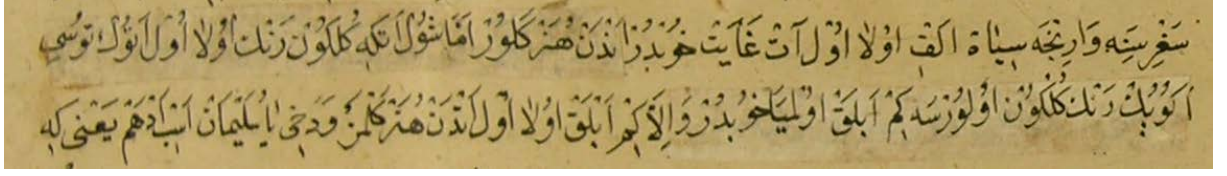 سَغْرِسِنَه وَارِنْجَه سِيَاه اَلَقْ اوُلاَ اوُلْ آتْ غَايَتْ خوُبْدُرْ اَنْدَنْ هُنَرْ كَلوُرْ اَمَّا شوُلْ آتكِه كُلْكوُنْ رَنْكْ اوُلاَ اوُلْ آتوُكْ توُسِي
اَكَرْ رَنْكْ كُلْكوُنْ اوُلوُرْسَه كِمْ اَبْلَقْ اوُلْمِيَا خوُبْدُرْ وَاِلاَّ كِمْ اَبْلَقْ اوُلاَ اوُلْ آتْدَنْ هُنَرْ كَلْمَزْ وَدَخِي يَا سُلَيْمَانْ اَسْبِ اَدْهَمْ يَعْنِي كِه